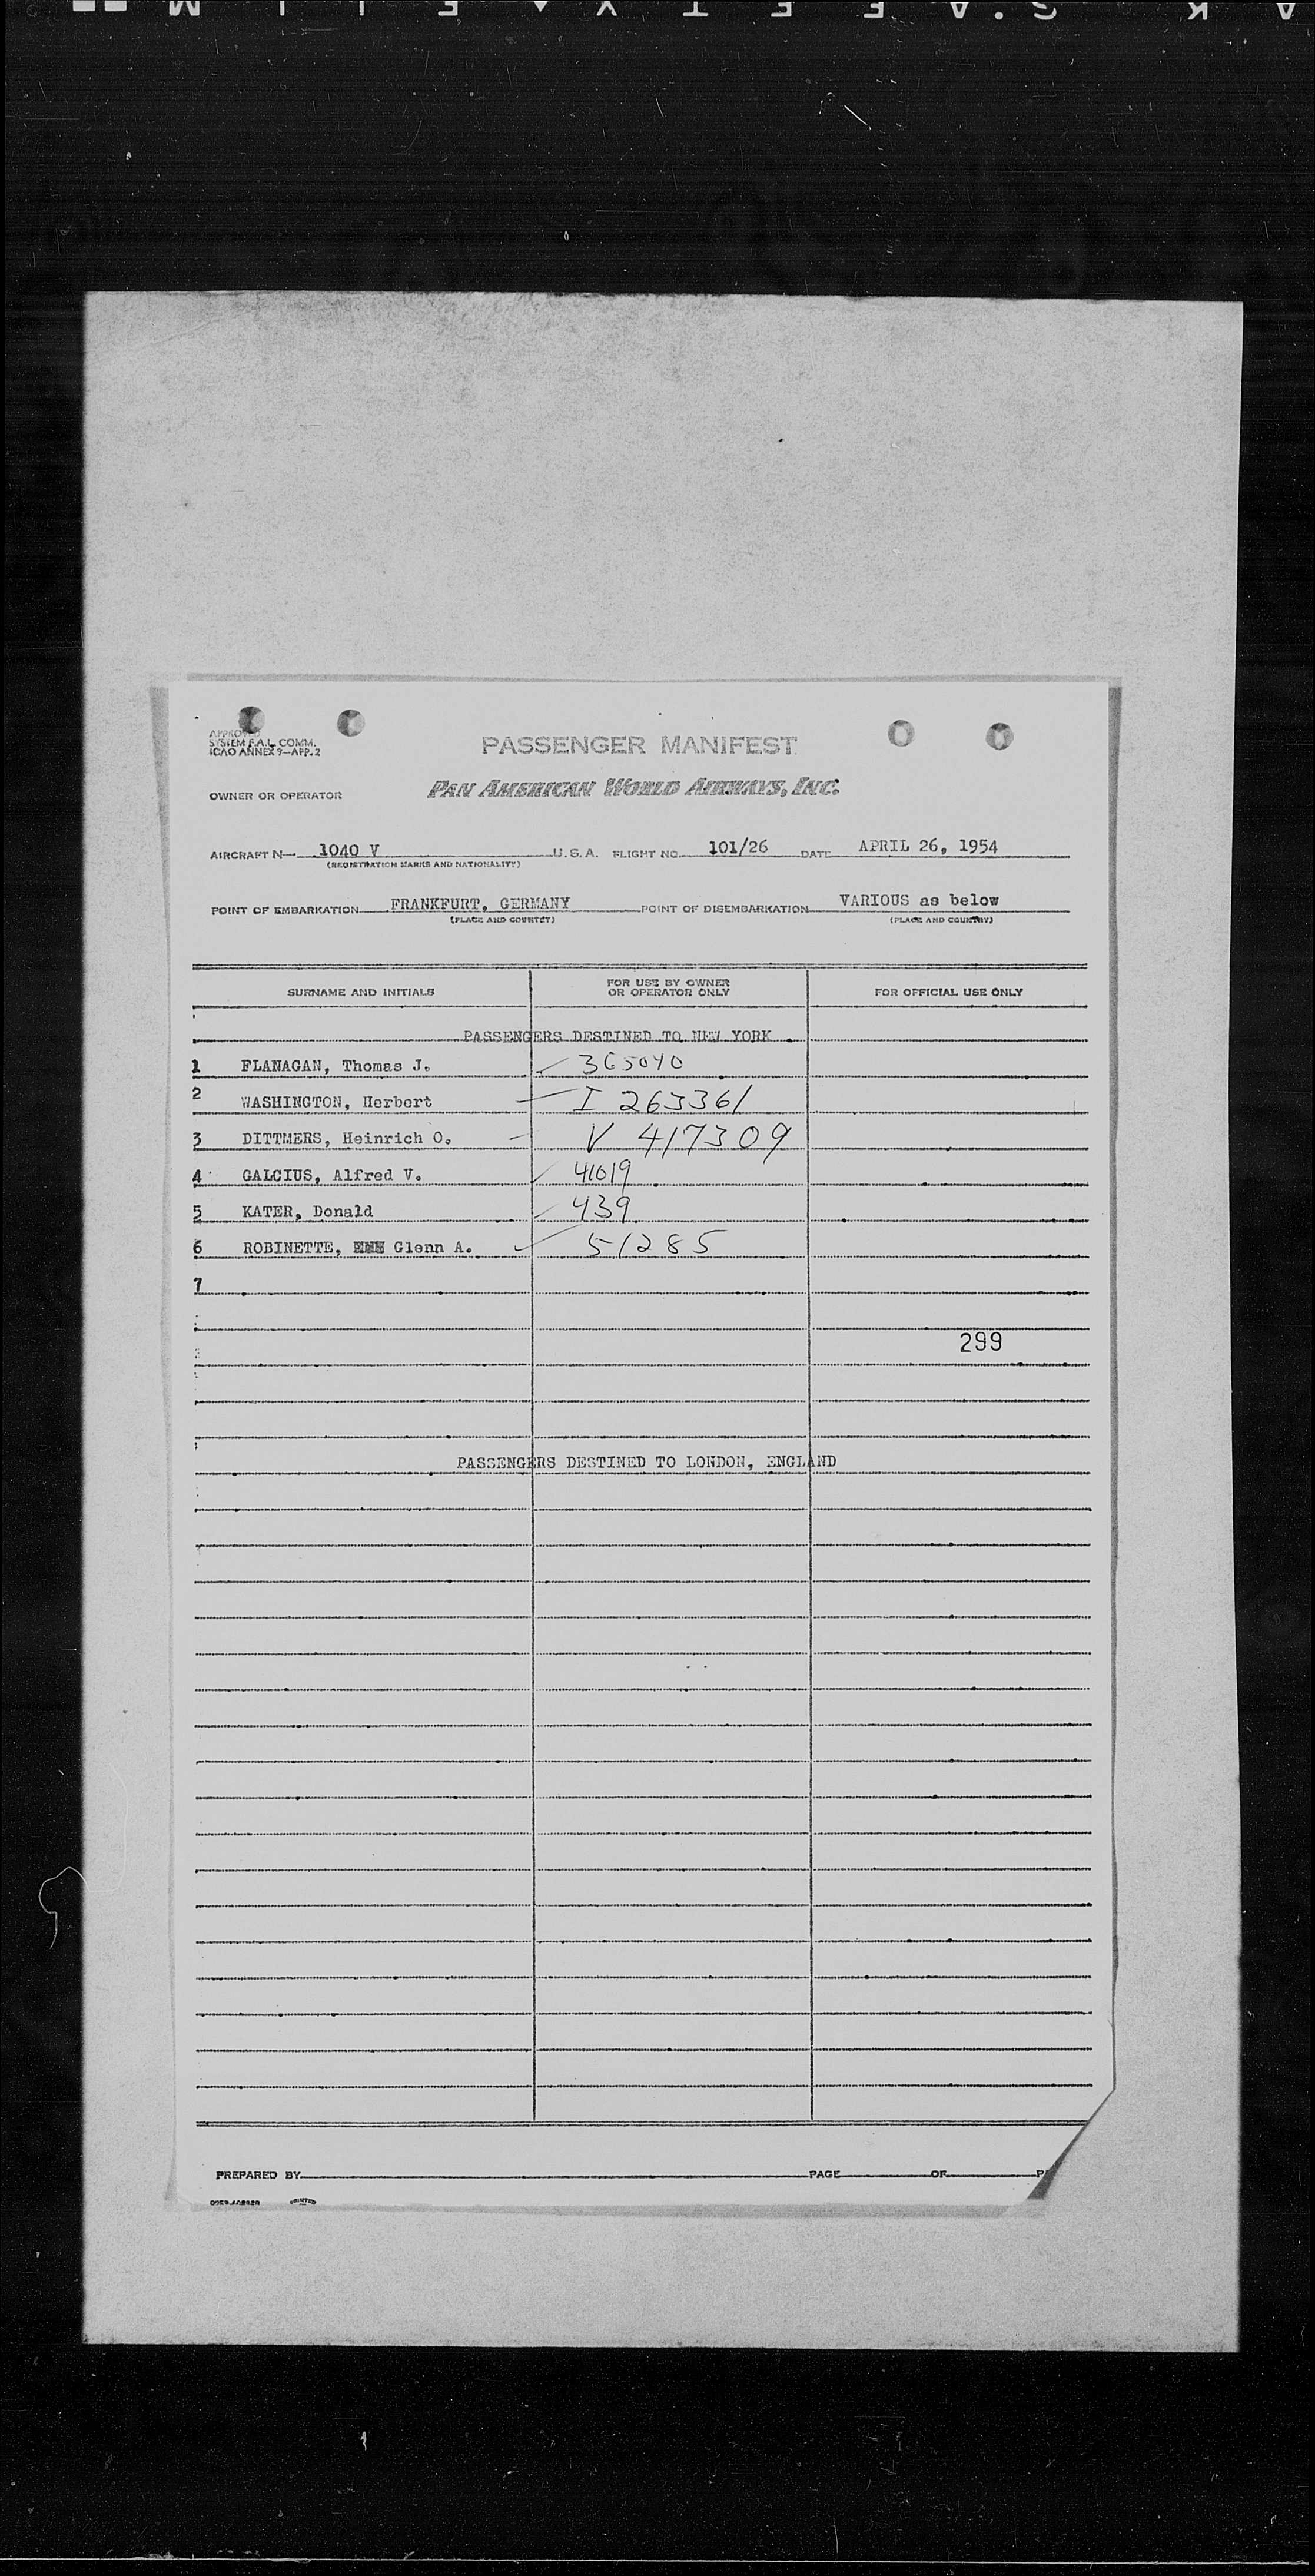 APPROVED
SYSTEM F.A.L. COMM.
ICAO ANNEX 9—APP. 2
PASSENGER MANIFEST
OWNER OR OPERATOR PAN AMERICAN WORLD AIRWAYS, INC.
AIRCRAFT N— 1040 V U.S.A. FLIGHT NO. 101/26 DATE APRIL 26, 1954
(REGISTRATION MARKS AND NATIONALITY)
POINT OF EMBARKATION FRANKFURT, GERMANY POINT OF DISEMBARKATION VARIOUS as below
(PLACE AND COUNTRY) (PLACE AND COUNTRY)
SURNAME AND INITIALS FOR USE BY OWNER OR OPERATOR ONLY FOR OFFICIAL USE ONLY
PASSENGERS DESTINED TO NEW YORK
1 FLANAGAN, Thomas J. 365040
2 WASHINGTON, Herbert I 263361
3 DITTMERS, Heinrich O. V 417309
4 GALCIUS, Alfred V. 41019
5 KATER, Donald 439
6 ROBINETTE, Glenn A. 51285
7
299
PASSENGERS DESTINED TO LONDON, ENGLAND
PREPARED BY PAGE OF
PRINTED